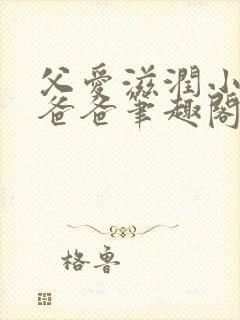 父爱滋润小
爸爸笔趣阁
格鲁